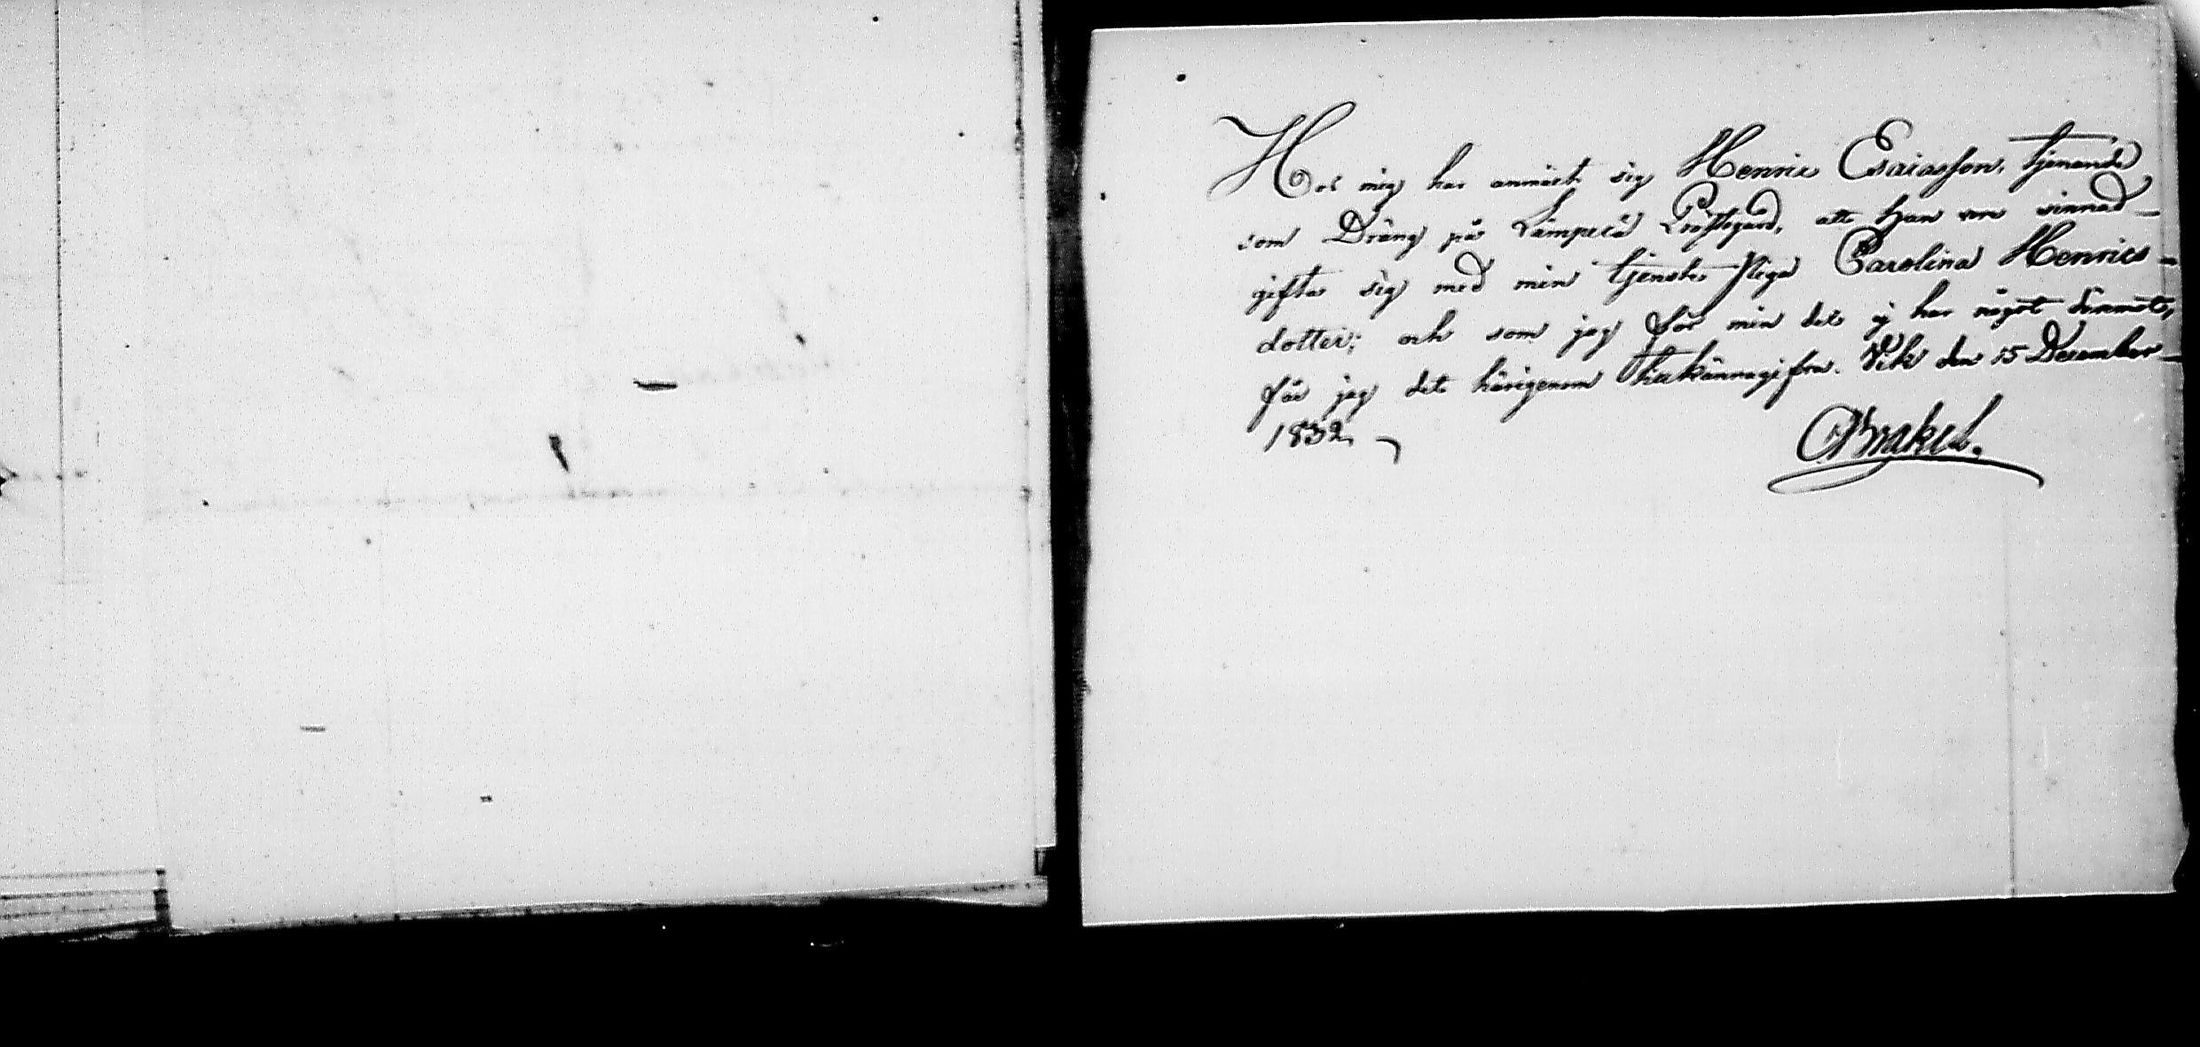 Hos mig har anmält sig Henric Esaiasson, tjenande
som Dräng på Prästgård, att han var sinnad
gifta sig med min tjenste Piga Carolina Henrics-
dotter; och som jag för min del ej har något däremot,
får jag det härigenom tillkännagifva. Vik den 15 December
1832.